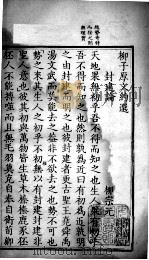 柳子厚文約選
封建論
柳宗元
天地果無初乎吾不得而知之也生人果有初乎
吾不得而知之也然則孰為近曰有初為近孰明
之由封建而明之也彼封建者更古聖王堯舜禹
湯文武而莫能去之蓋非不欲去之也勢不可也
勢之來其生人之初乎不初無以有封建封建非
聖人意也彼其初與萬物皆生草木榛榛鹿豕狉
狉人不能搏噬而且無毛羽莫克自奉自衛荀卿